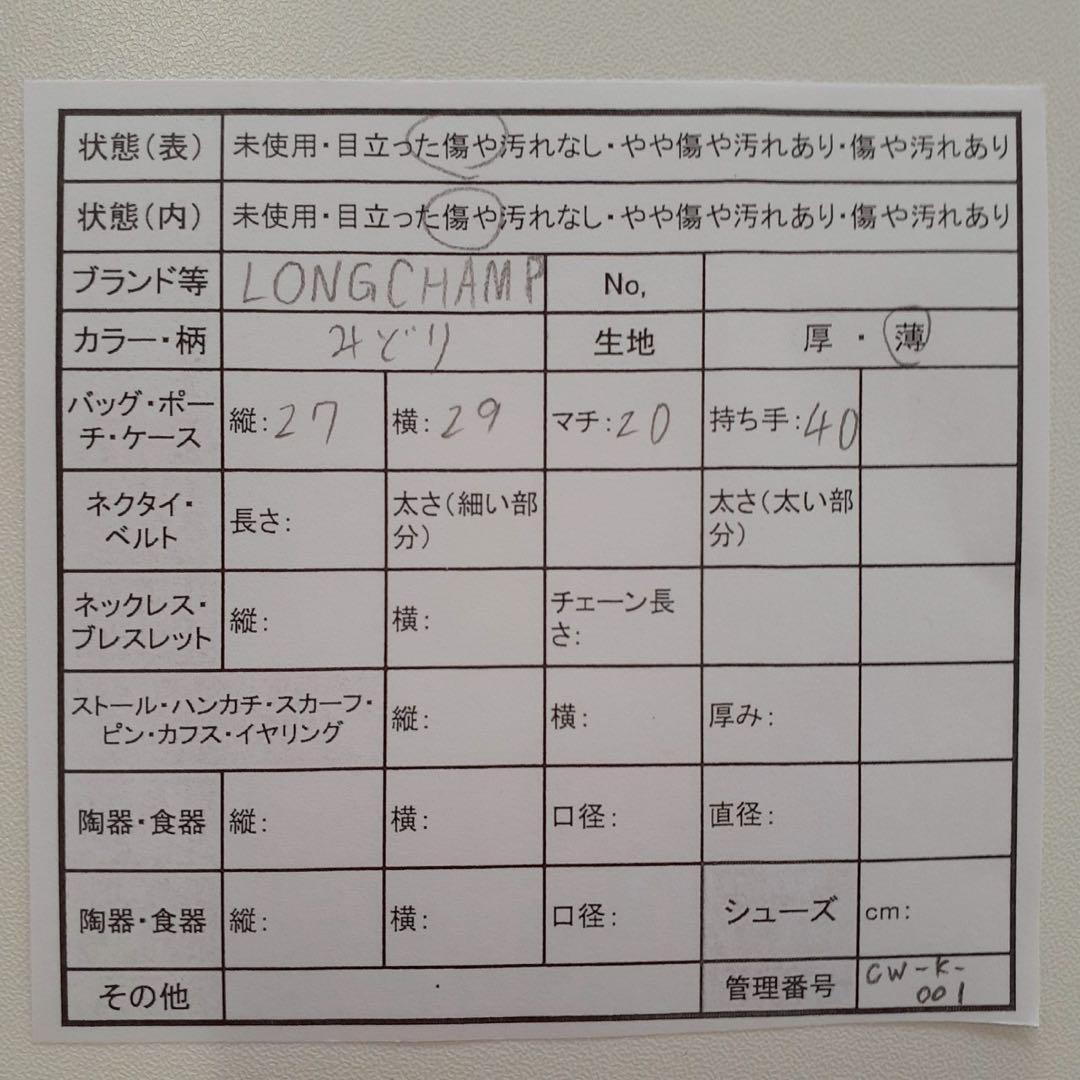 状態(表) 未使用・目立った傷や汚れなし・やや傷や汚れあり・傷や汚れあり
状態(内) 未使用・目立った傷や汚れなし・やや傷や汚れあり・傷や汚れあり
ブランド等 LONGCHAMP No,
カラー・柄 みどり 生地 厚・薄
バッグ・ポー
チ・ケース 縦:27 横:29 マチ:20 持ち手:40
ネクタイ・
ベルト 長さ: 太さ(細い部
分) 太さ(太い部
分)
ネックレス・
ブレスレット 縦: 横: チェーン長
さ:
ストール・ハンカチ・スカーフ・
ピン・カフス・イヤリング 縦: 横: 厚み:
陶器・食器 縦: 横: 口径: 直径:
陶器・食器 縦: 横: 口径: シューズ cm:
その他 管理番号 CW-K-
001